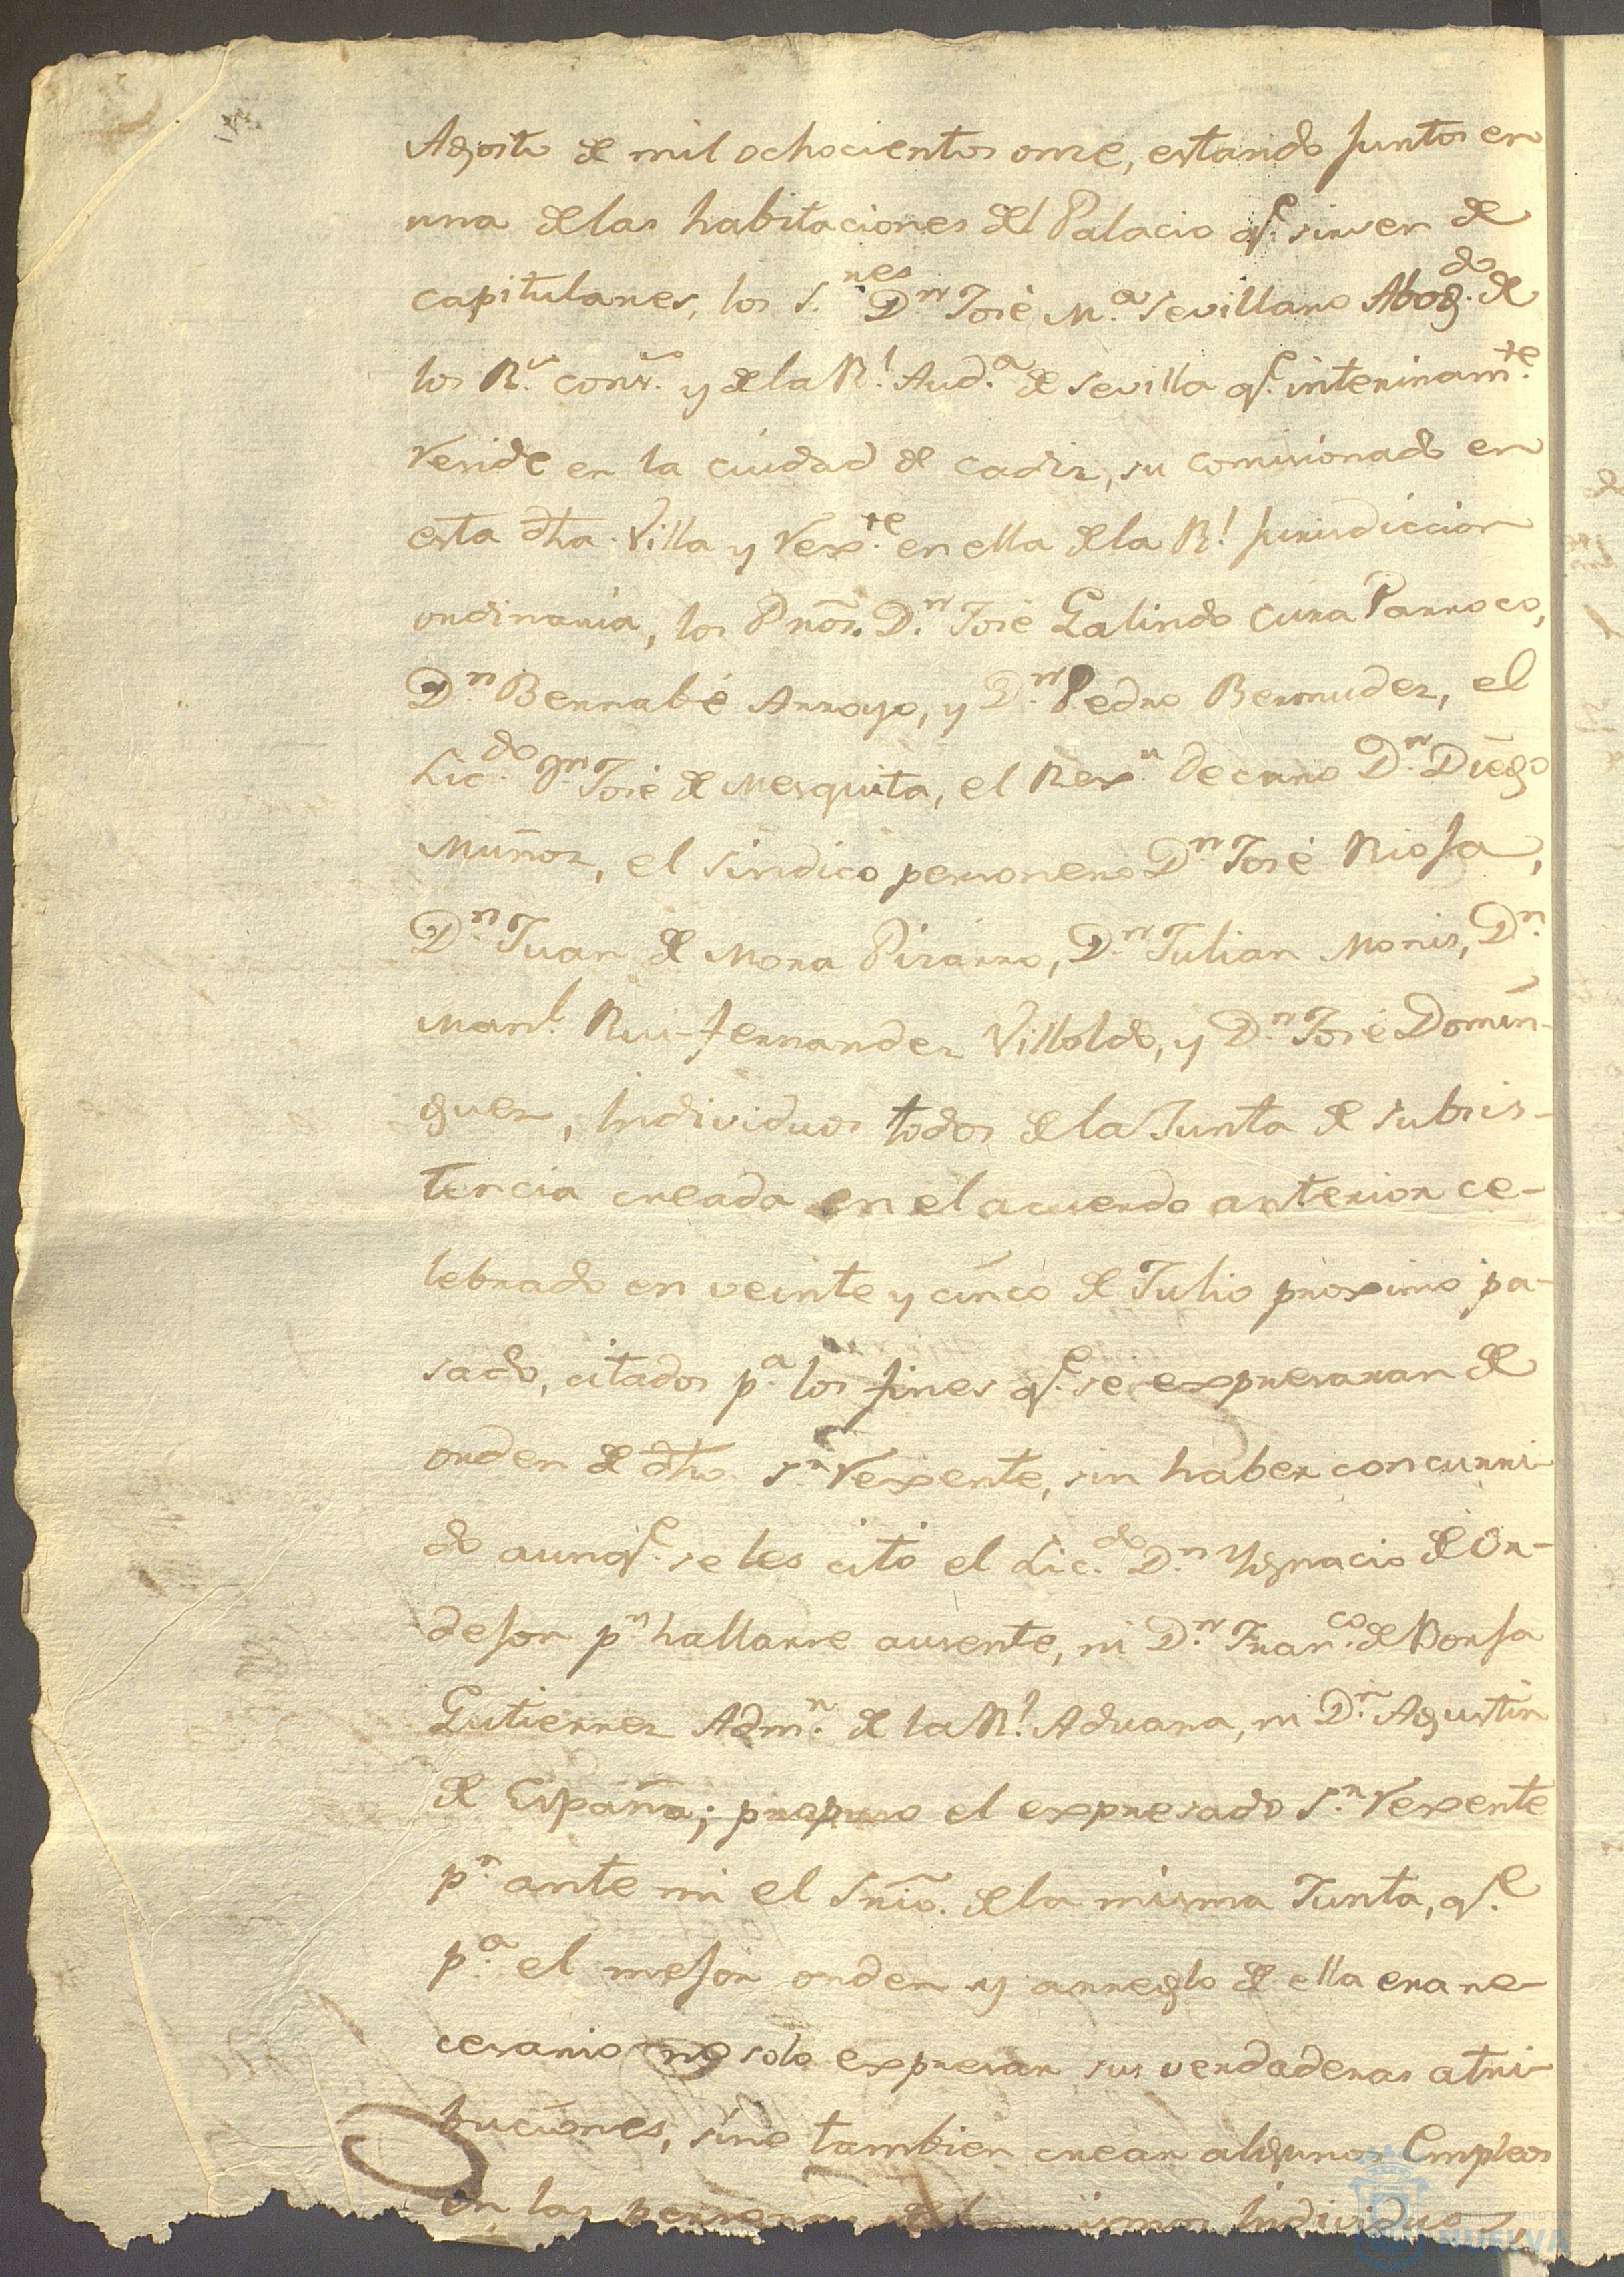 Agosto de mil ochocientos once, estando juntos en
una de las habitaciones del Palacio q.e sirven de
capitulares, los S.nes D.n José M.a Sevillano Abog.do de
los R.s cons.s y de la R.l Aud.a de Sevilla q.e interinam.te
reside en la ciudad de Cadiz, su comisionado en
esta dha. Villa y Rex.te en ella de la R.l jurisdiccion
ordinaria, los Pños. D.n José Galindo Cura Parroco,
D.n Bernabé Arroyo, y D.n Pedro Bermudez, el
Lic.do D.n José de Mezquita, el Rex.r Decano D.n Diego
Muñoz, el Sindico personero D.n José Rioja,
D.n Juan de Mora Pizarro, D.n Julian Monis, D.n
Man.l Rui-fernandez Villoldo, y D.n José Domin-
guez, Individuos todos de la Junta de subsis-
tencia creada en el acuerdo anterior ce-
lebrado en veinte y cinco de Julio proximo pa-
sado, citados p.a los fines q.e se expresaran de
orden de dho. S.r Rexente, sin haber concurri-
do aunq.e se les citó el Lic.do D.n Ygnacio de Or-
dejon p.r hallarse ausente, ni D.n Fran.co de Borja
Gutierrez Adm.r de la R.l Aduana, ni D.n Agustin
de España; propuso el expresado S.r Rexente
p.r ante mi el Srio. de la misma Junta, q.e
p.a el mejor orden y arreglo de ella era ne-
cesario no solo expresar sus verdaderas atri-
buciones, sino tambien crear algunos Empleos
en las personas de los mismos Individuos
AYUNTAMIENTO DE
HUELVA